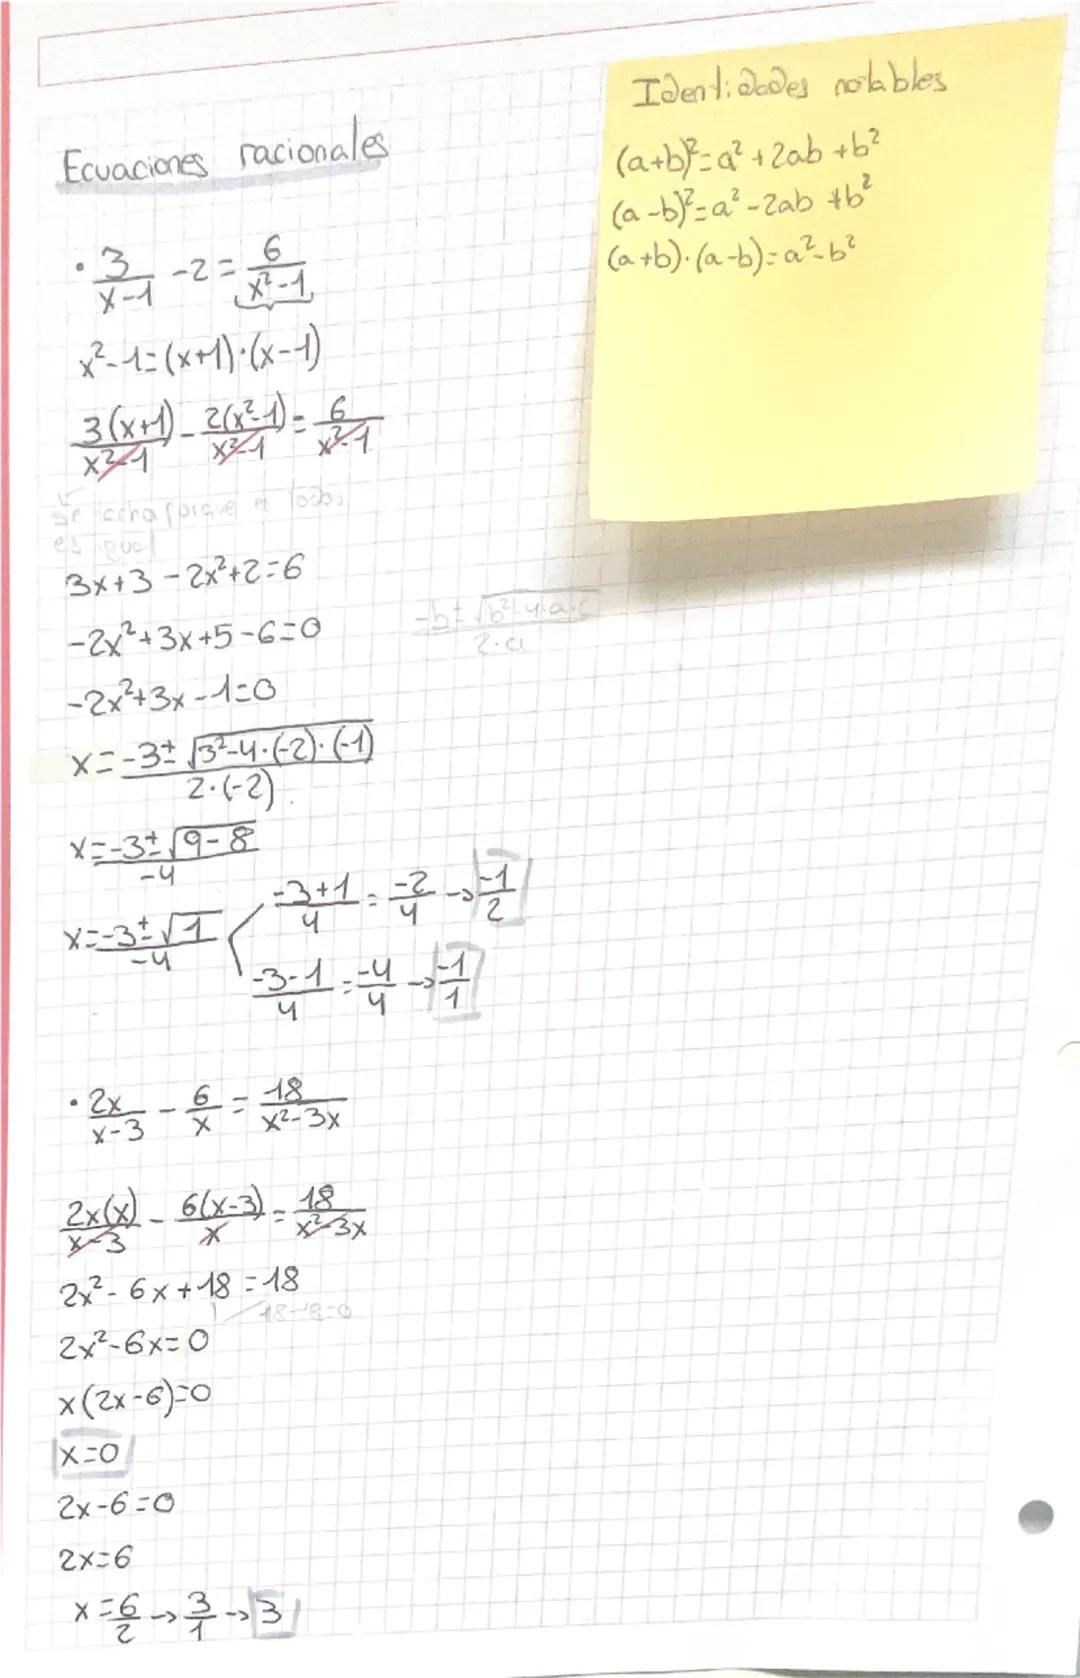 Ecuaciones racionales
· 3/(x-1) - 2 = 6/(x²-1)
x²-1=(x+1)·(x-1)
3(x+1)/(x²-1) - 2(x²-1)/(x²-1) = 6/(x²-1)
Se tacha porque en todos
es igual
3x+3-2x²+2=6
-2x²+3x+5-6=0
-2x²+3x-1=0
x=(-3±√(3²-4·(-2)·(-1)))/(2·(-2))
x=(-3±√(9-8))/(-4)
x=(-3±√1)/(-4)
(-3+1)/4 = -2/4 → -1/2
(-3-1)/4 = -4/4 → -1/1
(-b±√(b²-4·a·c))/(2·a)
· 2x/(x-3) - 6/x = 18/(x²-3x)
2x(x)/(x-3) - 6(x-3)/x = 18/(x²-3x)
2x²-6x+18=18
18-18=0
2x²-6x=0
x(2x-6)=0
x=0
2x-6=0
2x=6
x=6/2 → 3/1 → 3
Identidades notables
(a+b)²=a²+2ab+b²
(a-b)²=a²-2ab+b²
(a+b)·(a-b)=a²-b²